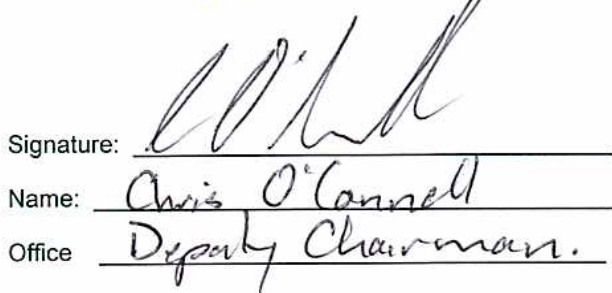 Signature: C O'Connell
Name: Chris O'Connell
Office Deputy Chairman.